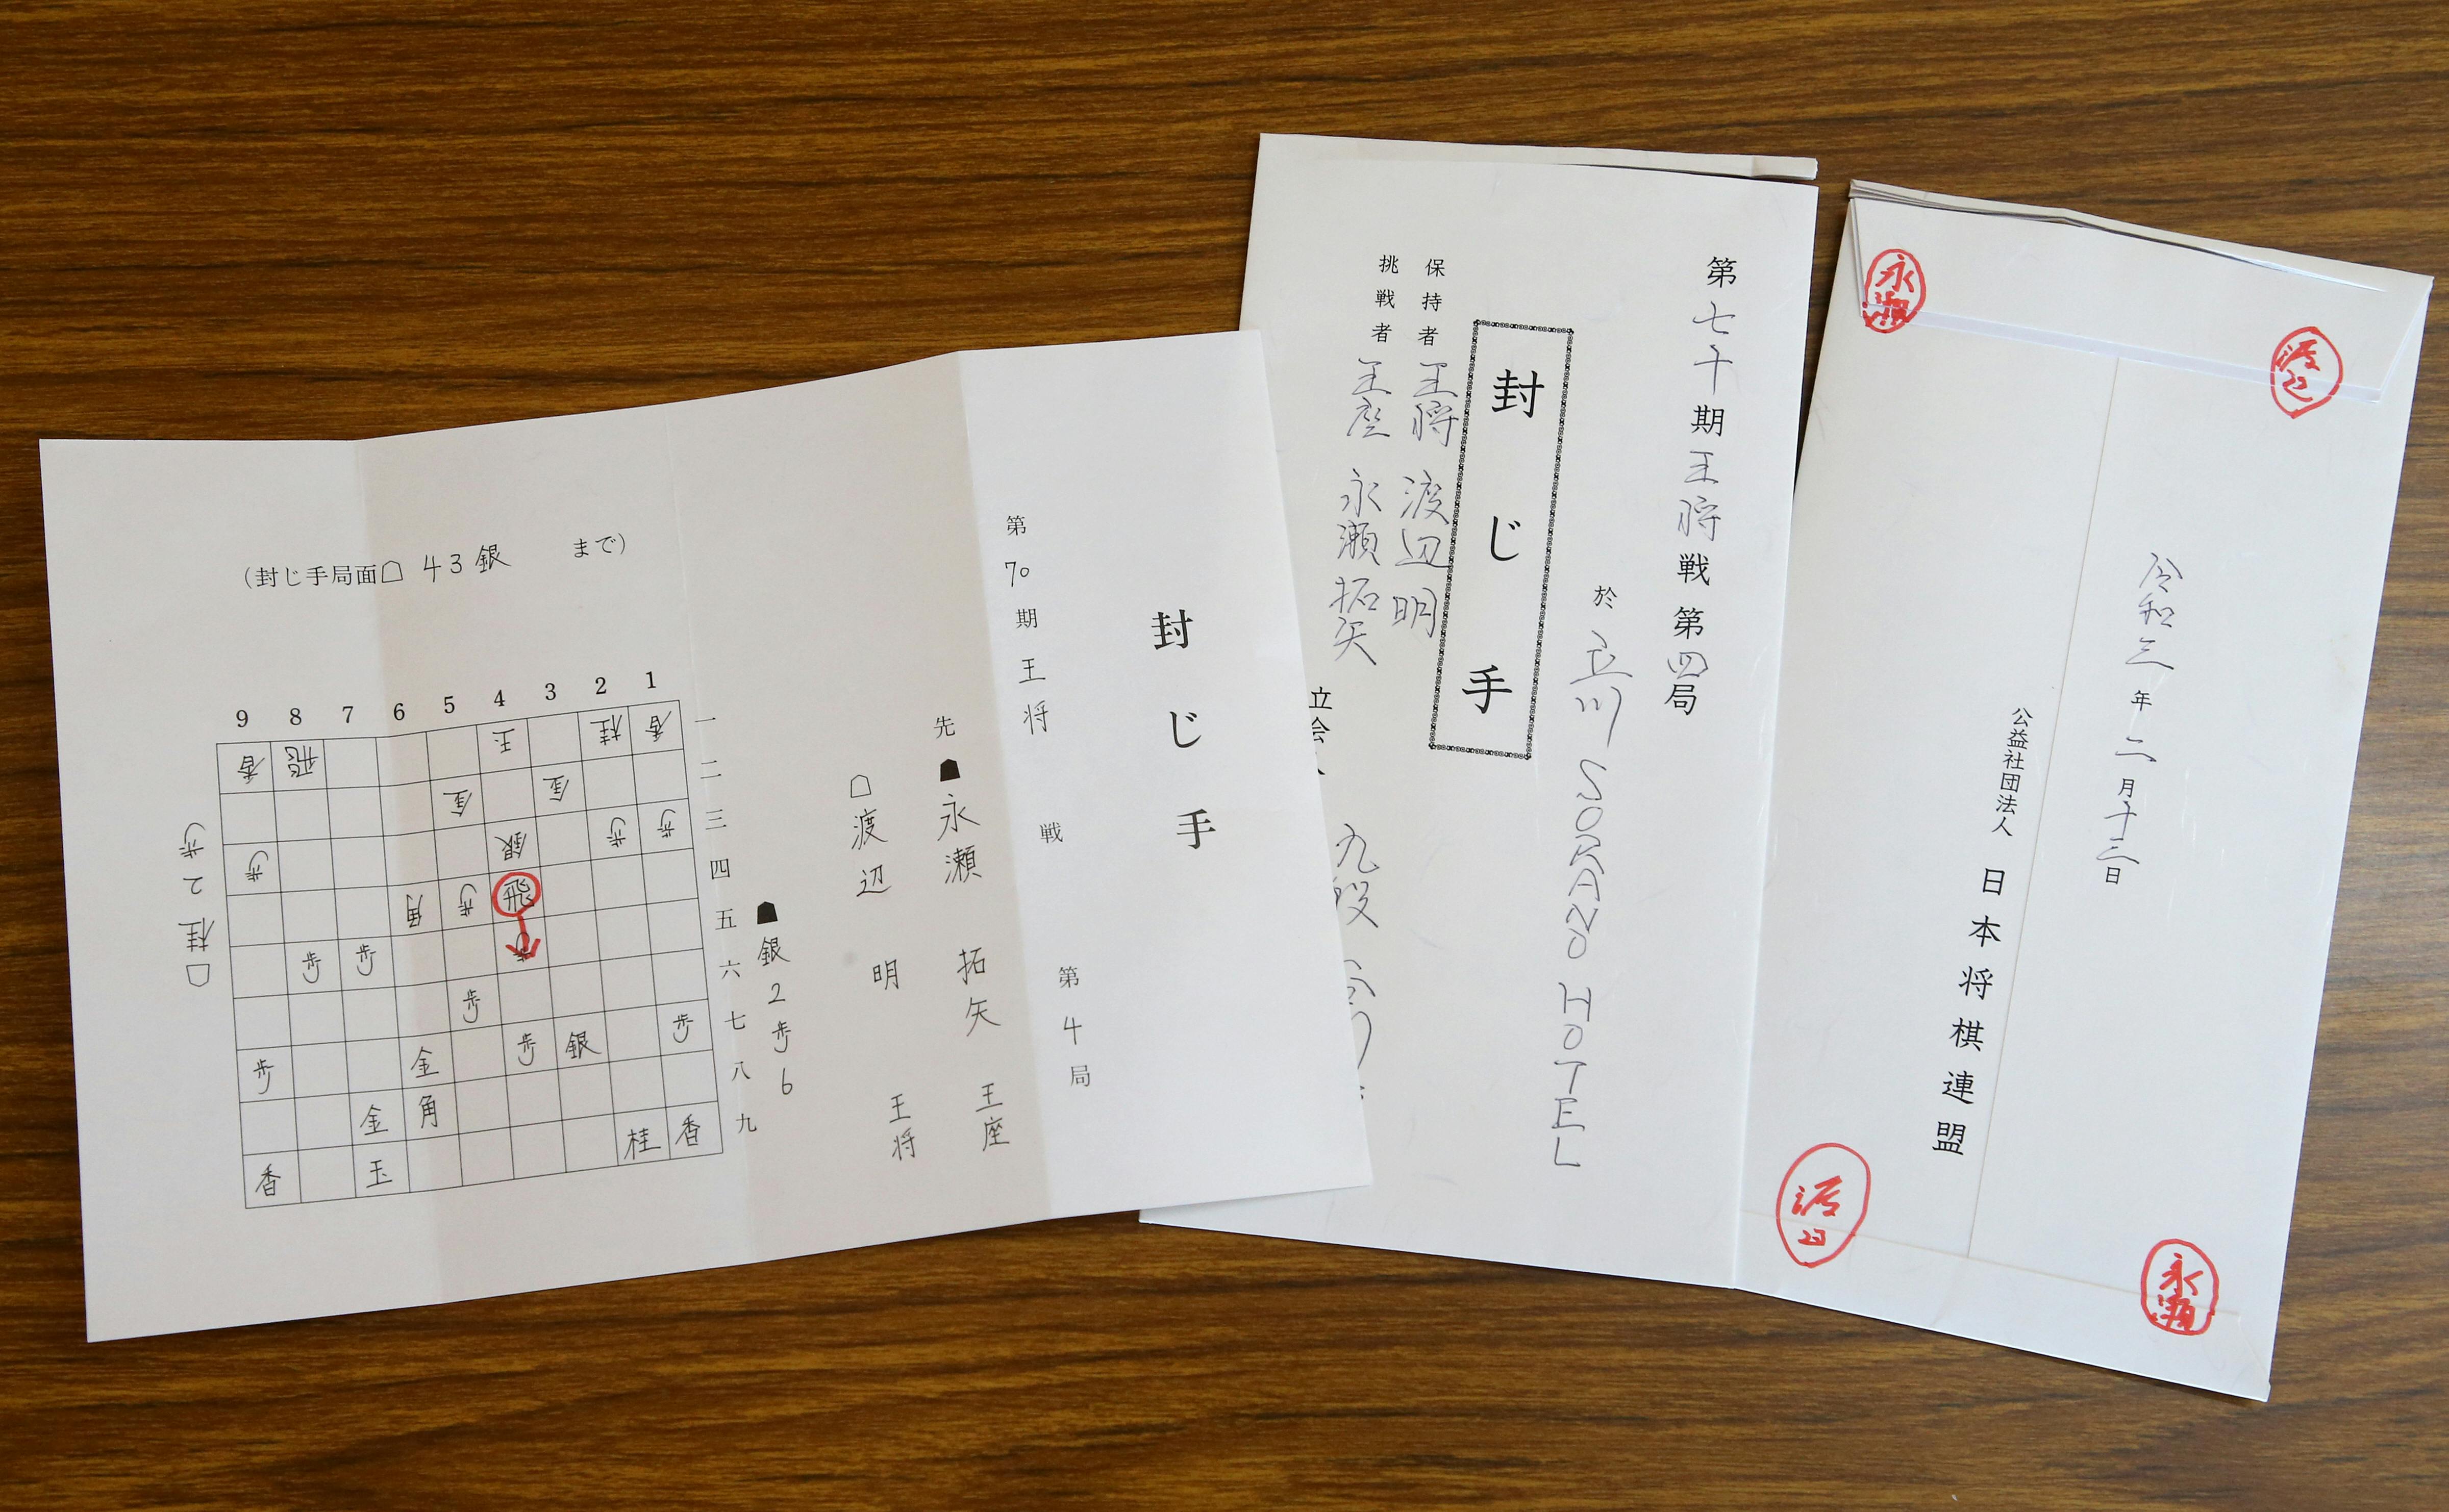 封じ手
第70期王将戦 第4局
先 ☗永瀬 拓矢 王座
☖渡辺 明 王将
☗銀2歩6
(封じ手局面☖ 43銀 まで)
9 8 7 6 5 4 3 2 1
香 飛 玉 桂 香 一
金 金 二
歩 銀 歩 歩 三
角 歩 飛 四
歩 歩 歩 五
歩 六
歩 金 歩 銀 歩 七
金 角 八
香 玉 桂 香 九
☖桂2歩
第七十期王将戦第四局
於 立川 SORANO HOTEL
封じ手
保持者 王将 渡辺 明
挑戦者 王座 永瀬拓矢
立会 九段
令和三年二月十三日
公益社団法人 日本将棋連盟
永瀬
渡辺
渡辺
永瀬